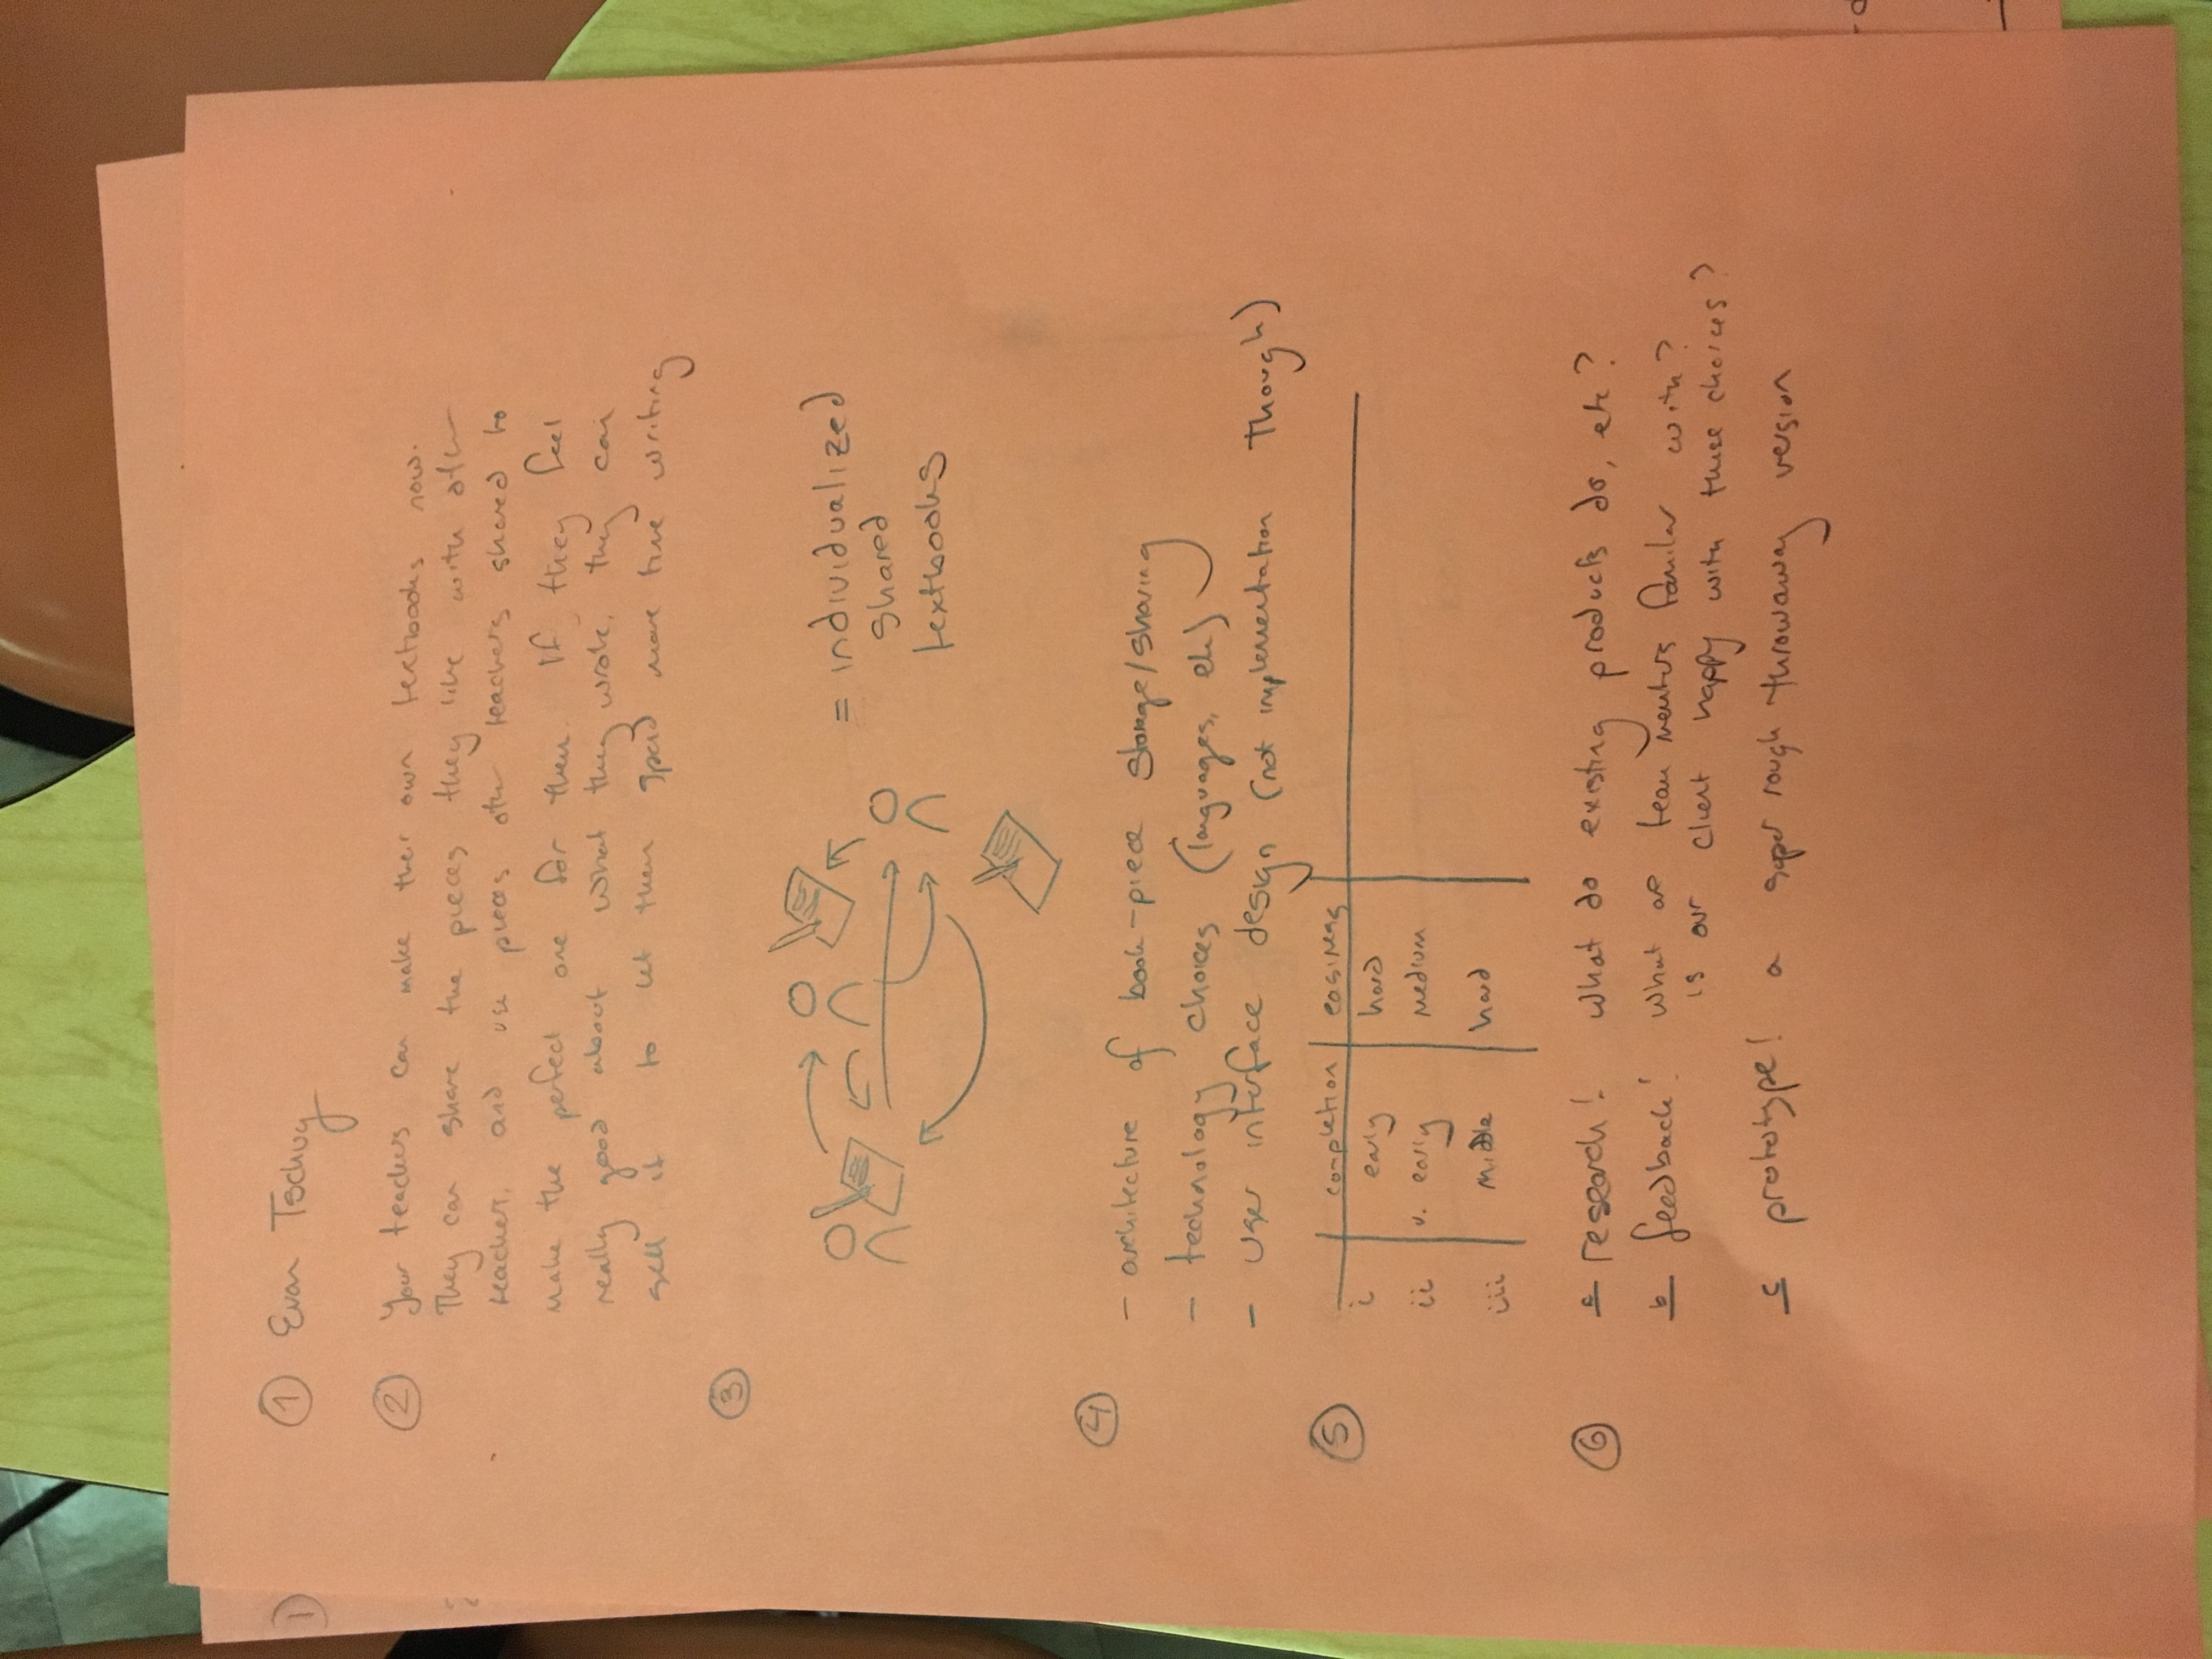 1 Evan Tschuy
2 Your teachers can make their own textbooks now.
They can share the pieces they like with other
teachers, and use pieces other teachers shared to
make the perfect one for them. If they feel
really good about what they wrote, they can
sell it to let them spend more time writing
3
= individualized
shared
textbooks
4
- architecture of book-piece storage/sharing
- technology choices (languages, etc)
- user interface design (not implementation though)
5 completion easiness
i early hard
ii v. early medium
iii middle hard
6 a research! what do existing products do, etc?
b feedback! what are team members familiar with?
is our client happy with these choices?
c prototype! a super rough throwaway version
1)
2